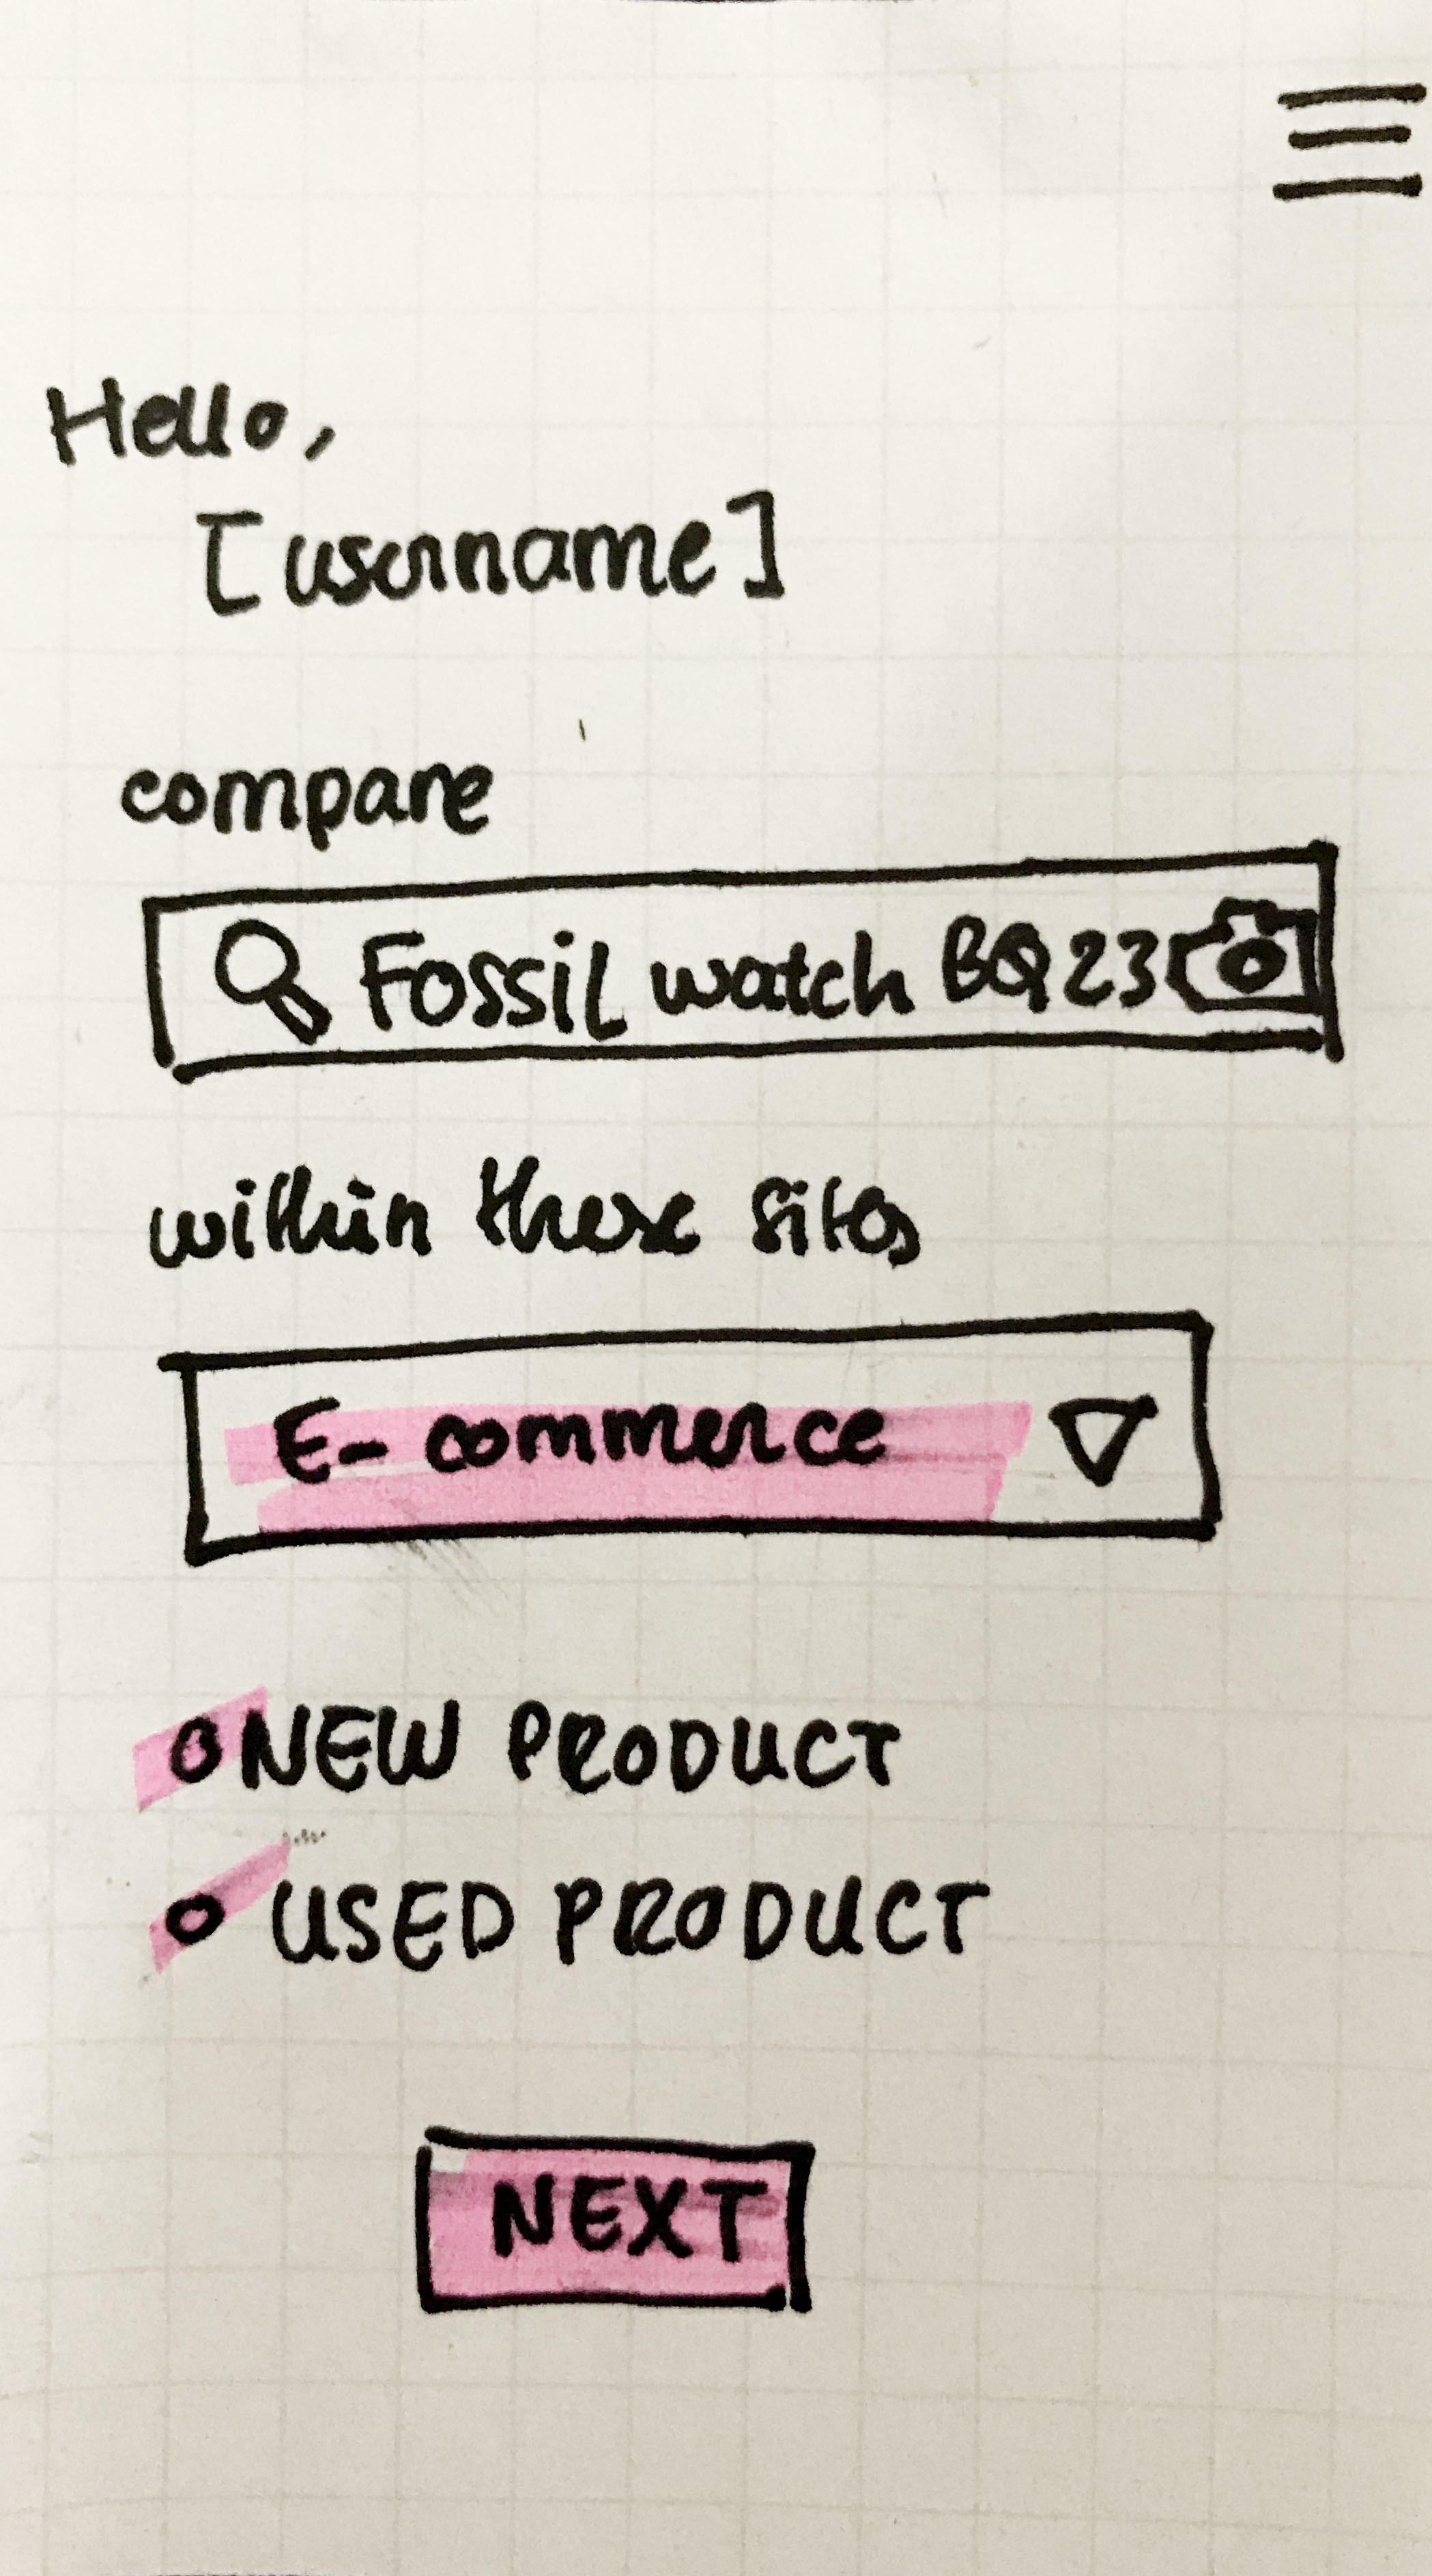 Hello,
[username]
compare
Fossil watch BQ23
within these sites
E-commerce
NEW PRODUCT
USED PRODUCT
NEXT